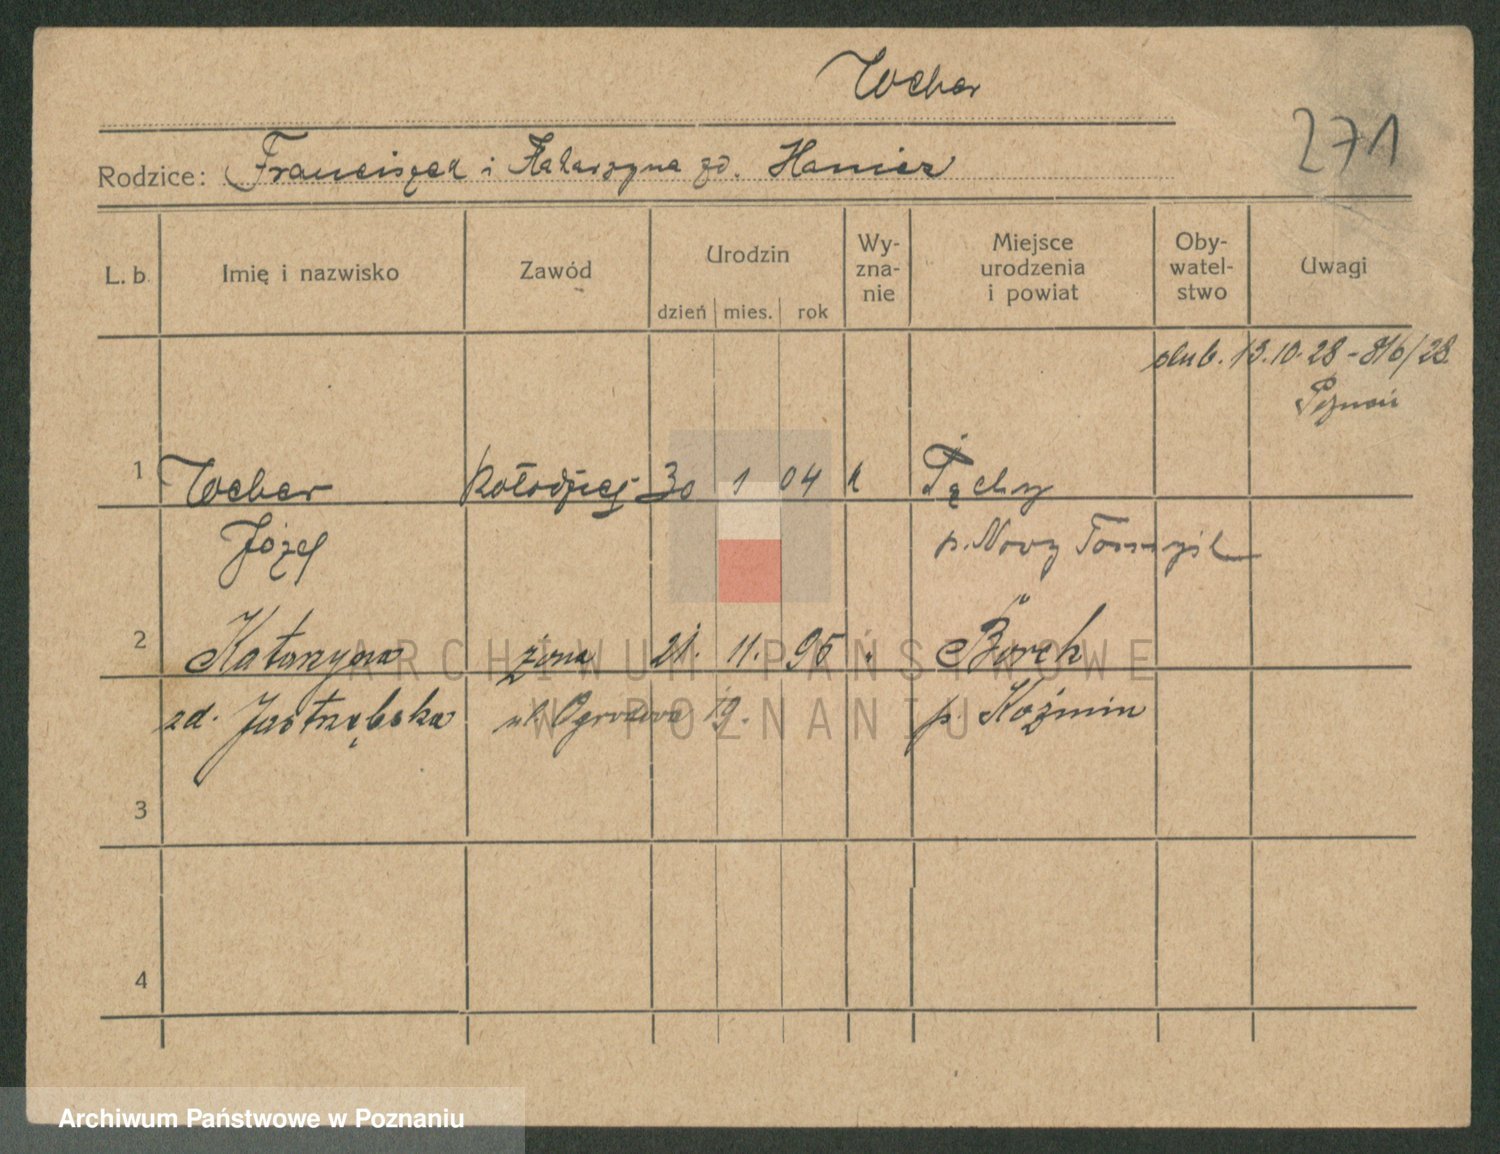 Weber
271
Rodzice: Franciszek i Katarzyna zd. Hanisz
L. b. Imię i nazwisko Zawód Urodzin dzień mies. rok Wy-
zna-
nie Miejsce
urodzenia
i powiat Oby-
watel-
stwo Uwagi
ślub. 13.10.28 - 816/28
Poznań
1 Weber kołodziej 30 1 04 k
Józef p. Nowy Tomyśl
2 Katarzyna żona 21. 11. 95 " Borek
zd. Jastrzębska ul. Ogrodowa 19. p. Koźmin
3
4
ARCHIWUM PAŃSTWOWE
W POZNANIU
Archiwum Państwowe w Poznaniu